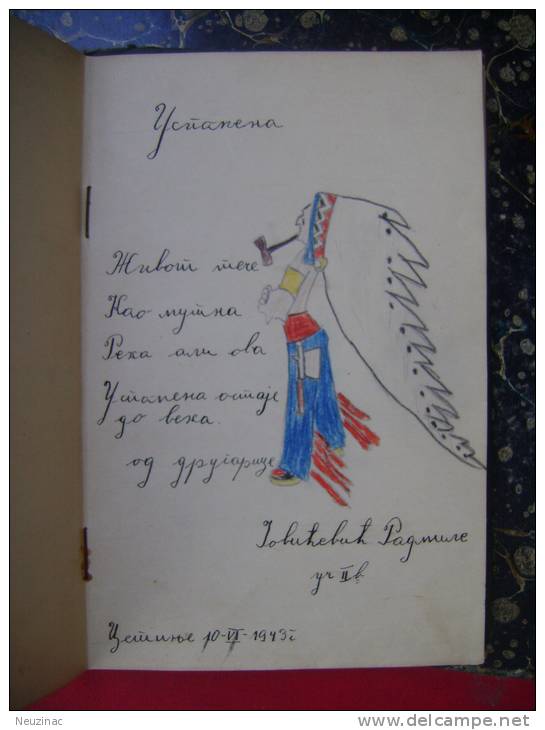 Успапена
Живот тече
Као мутна
Река али ова
Успапена остаје
до века.
од другарице
Јовићевић Радмиле
уч II в
Цетиње 10-VI-1943 г
Neuzinac
delcampe.net